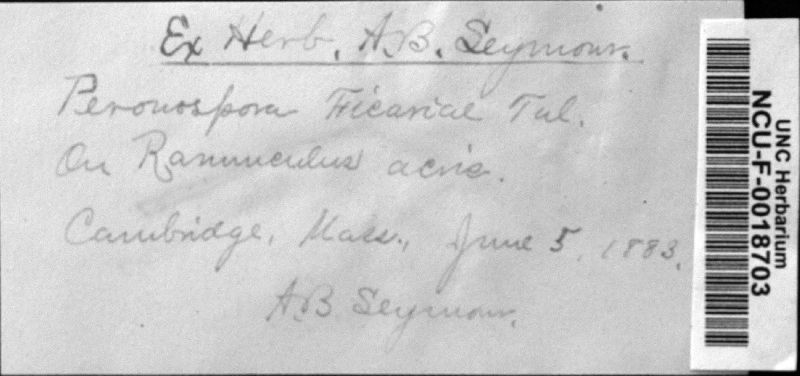 Ex Herb. A.B. Seymour.
Peronospora Ficariae Tul.
On Ranunculus acris.
Cambridge, Mass., June 5, 1883.
A.B. Seymour.
UNC Herbarium
NCU-F-0018703